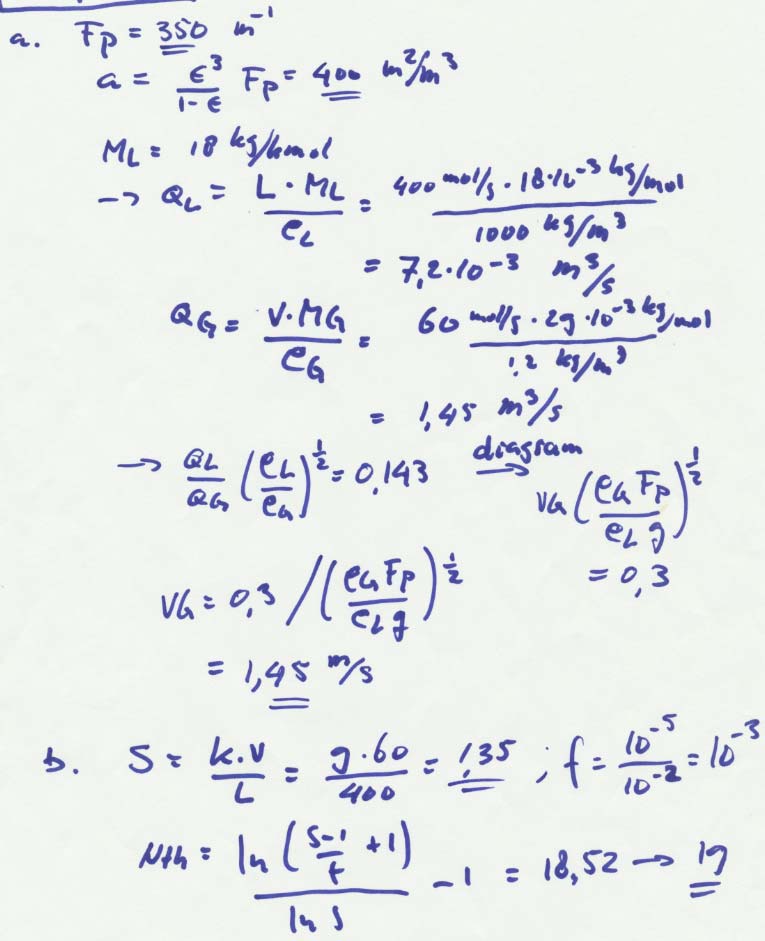 a. Fp = 350 m⁻¹
a = ϵ³/(1-ϵ) Fp = 400 m²/m³
ML = 18 kg/kmol
→ QL = L·ML/ρL = 400 mol/s · 18·10⁻³ kg/mol / 1000 kg/m³
= 7,2·10⁻³ m³/s
QG = V·MG/ρG = 60 mol/s · 29·10⁻³ kg/mol / 1,2 kg/m³
= 1,45 m³/s
→ QL/QG (ρL/ρG)^½ = 0,143 diagram → VG (ρG Fp/ρL g)^½
= 0,3
VG = 0,3 / (ρG Fp/ρL g)^½
= 1,45 m/s
b. S = k·V/L = 9·60/400 = 1,35 ; f = 10⁻⁵/10⁻² = 10⁻³
Nth = ln((S-1)/f + 1)/ln S - 1 = 18,52 → 19